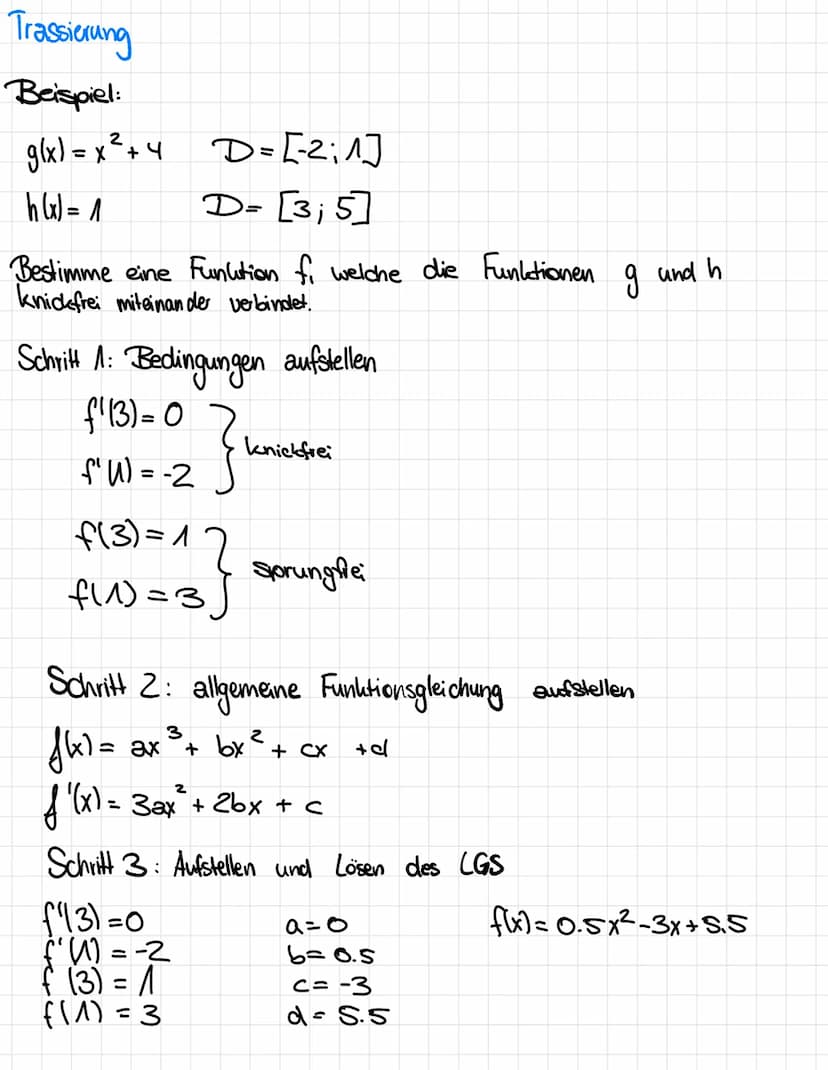 Trassierung
Beispiel:
g(x) = x² + 4 D = [-2; 1]
h(x) = 1 D = [3; 5]
Bestimme eine Funktion f, welche die Funktionen g und h
knickfrei miteinander verbindet.
Schritt 1: Bedingungen aufstellen
f'(3) = 0
f'(1) = -2
} knickfrei
f(3) = 1
f(1) = 3
} sprungfrei
Schritt 2: allgemeine Funktionsgleichung aufstellen
f(x) = ax³ + bx² + cx + d
f'(x) = 3ax² + 2bx + c
Schritt 3: Aufstellen und Lösen des LGS
f'(3) = 0 a = 0 f(x) = 0.5x² - 3x + 5.5
f'(1) = -2 b = 0.5
f(3) = 1 c = -3
f(1) = 3 d = 5.5